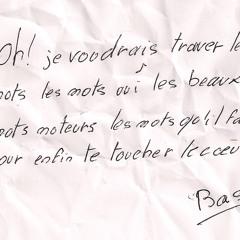 Oh! je voudrais traver le
mots les mots oui les beaux
mots moteurs les mots qu'il fa
our enfin te toucher le cœu
Bas